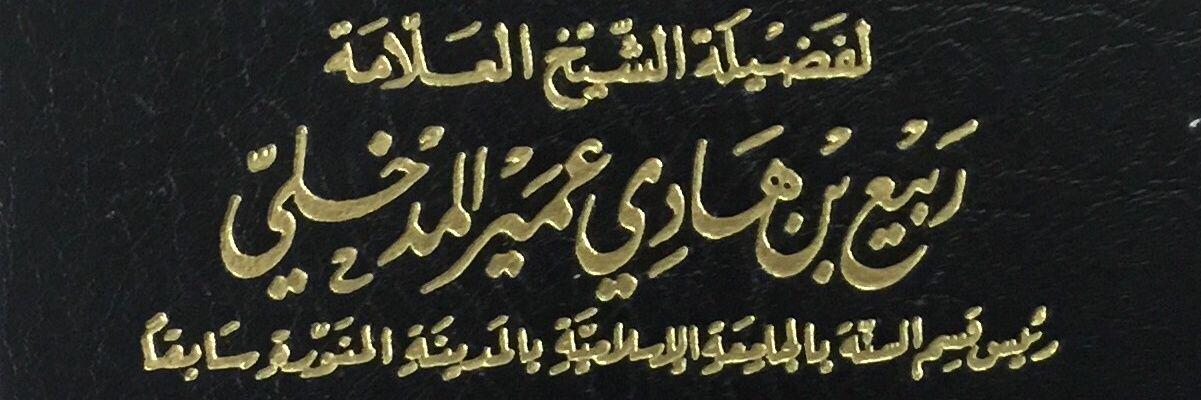 لفضيلة الشيخ العلامة
ربيع بن هادي عمير المدخلي
رئيس قسم السنة بالجامعة الإسلامية بالمدينة المنورة سابقاً